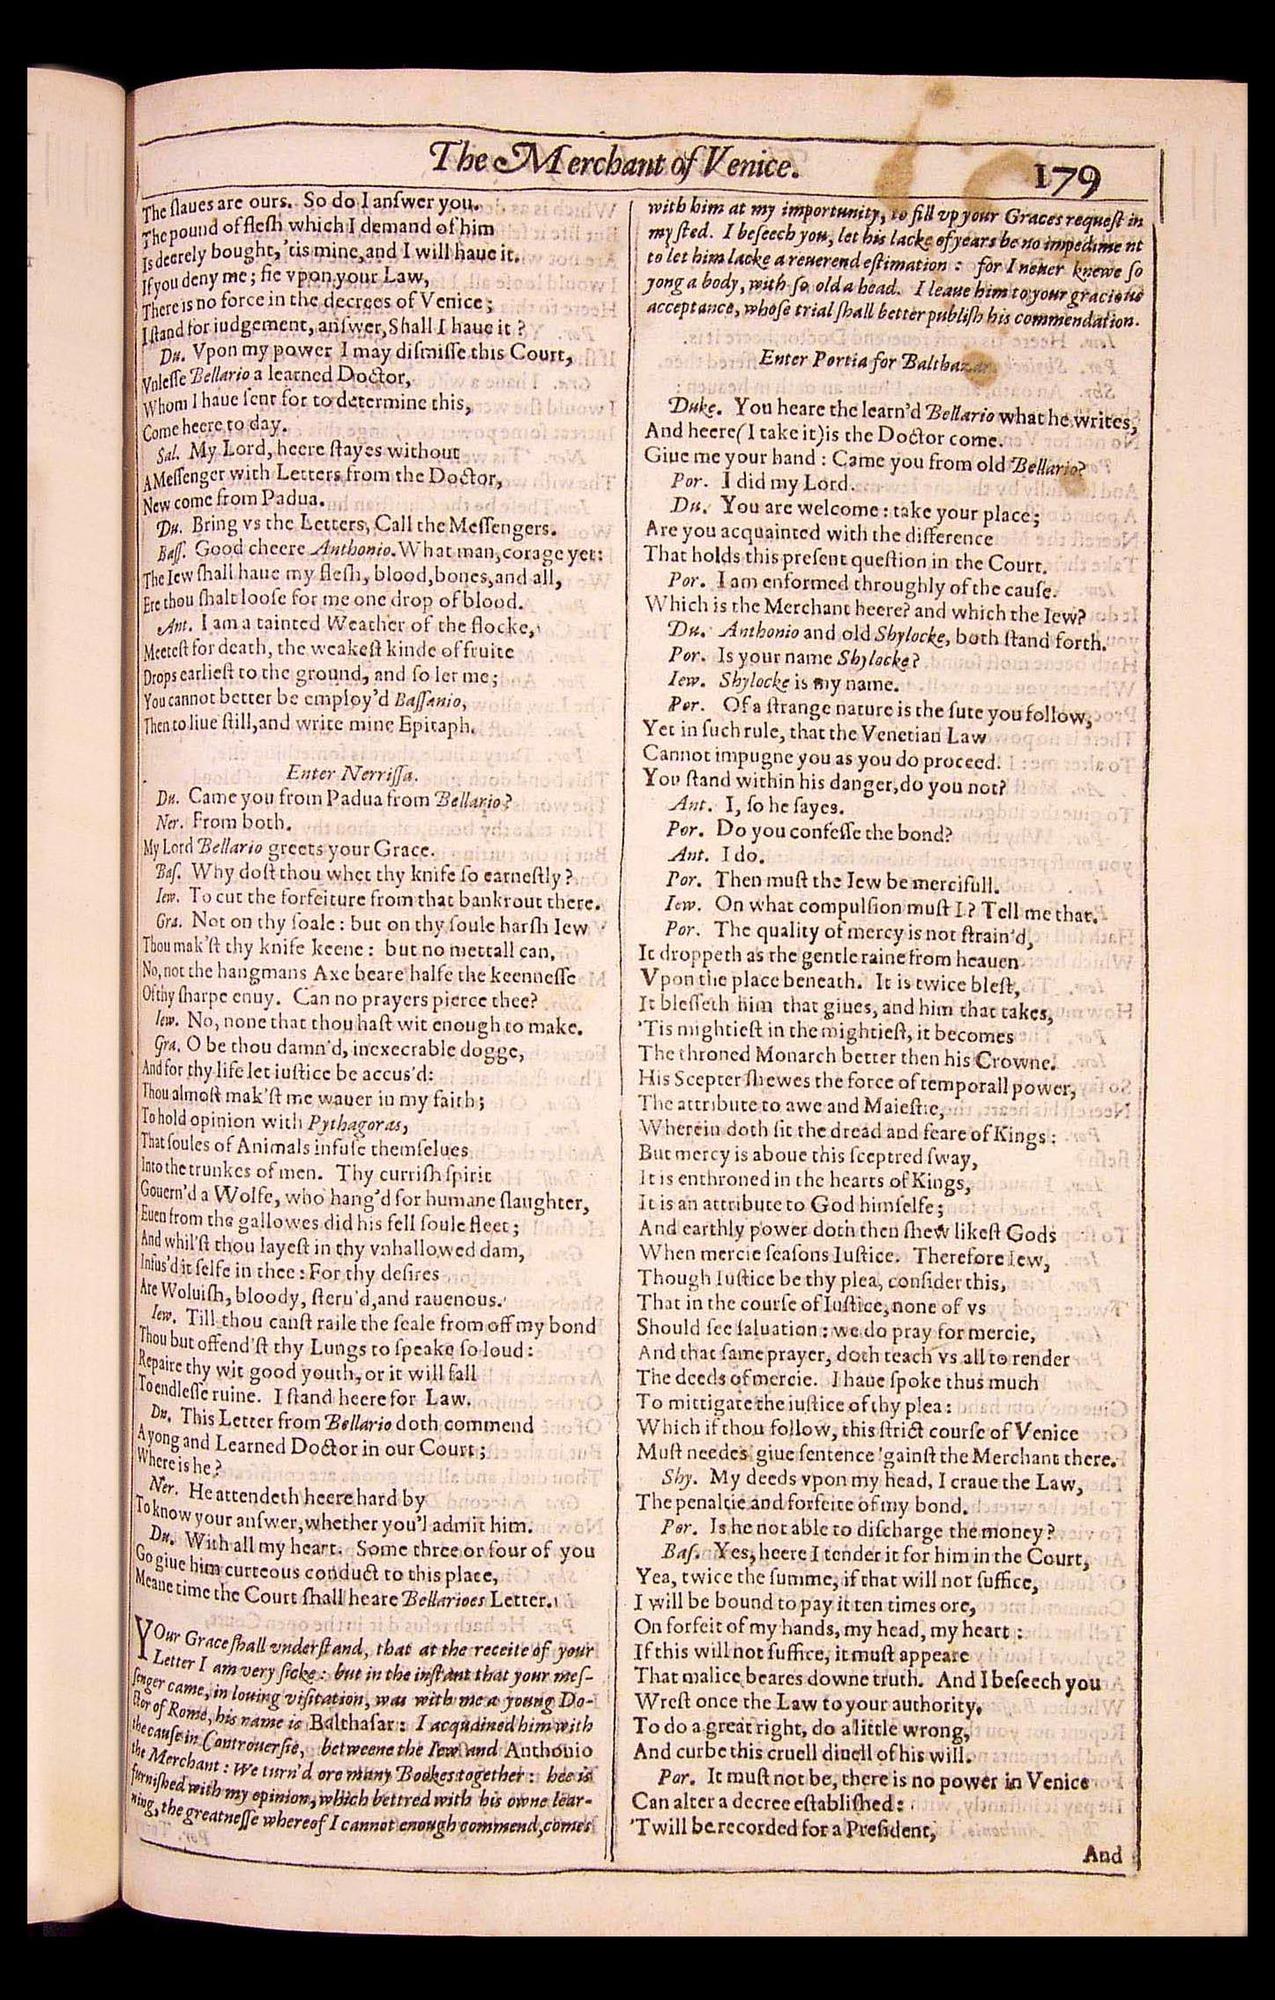 The Merchant of Venice.
179
The ſlaues are ours. So do I anſwer you.
The pound of fleſh which I demand of him
Is deerely bought, 'tis mine, and I will haue it.
If you deny me; fie vpon your Law,
There is no force in the decrees of Venice;
I ſtand for iudgement, anſwer, Shall I haue it?
Du. Vpon my power I may diſmiſſe this Court,
Vnleſſe Bellario a learned Doctor,
Whom I haue ſent for to determine this,
Come heere to day.
Sal. My Lord, heere ſtayes without
A Meſſenger with Letters from the Doctor,
New come from Padua.
Du. Bring vs the Letters, Call the Meſſengers.
Baſſ. Good cheere Anthonio. What man, corage yet:
The Iew ſhall haue my fleſh, blood, bones, and all,
Ere thou ſhalt looſe for me one drop of blood.
Ant. I am a tainted Weather of the flocke,
Meeteſt for death, the weakeſt kinde of fruite
Drops earlieſt to the ground, and ſo let me;
You cannot better be employ'd Baſſanio,
Then to liue ſtill, and write mine Epitaph.
Enter Nerriſſa.
Du. Came you from Padua from Bellario?
Ner. From both.
My Lord Bellario greets your Grace.
Baſ. Why doſt thou whet thy knife ſo earneſtly?
Iew. To cut the forfeiture from that bankrout there.
Gra. Not on thy ſoale: but on thy ſoule harſh Iew
Thou mak'ſt thy knife keene: but no mettall can,
No, not the hangmans Axe beare halfe the keenneſſe
Of thy ſharpe enuy. Can no prayers pierce thee?
Iew. No, none that thou haſt wit enough to make.
Gra. O be thou damn'd, inexecrable dogge,
And for thy life let iuſtice be accus'd:
Thou almoſt mak'ſt me wauer in my faith;
To hold opinion with Pythagoras,
That ſoules of Animals infuſe themſelues
Into the trunkes of men. Thy curriſh ſpirit
Gouern'd a Wolfe, who hang'd for humane ſlaughter,
Euen from the gallowes did his fell ſoule fleet;
And whil'ſt thou layeſt in thy vnhallowed dam,
Infus'd it ſelfe in thee: For thy deſires
Are Woluiſh, bloody, ſteru'd, and rauenous.
Iew. Till thou canſt raile the ſeale from off my bond
Thou but offend'ſt thy Lungs to ſpeake ſo loud:
Repaire thy wit good youth, or it will fall
To endleſſe ruine. I ſtand heere for Law.
Du. This Letter from Bellario doth commend
A yong and Learned Doctor in our Court;
Where is he?
Ner. He attendeth heere hard by
To know your anſwer, whether you'l admit him.
Du. With all my heart. Some three or four of you
Go giue him curteous conduct to this place,
Meane time the Court ſhall heare Bellarioes Letter.
YOur Grace ſhall vnderſtand, that at the receite of your
Letter I am very ſicke: but in the inſtant that your meſ-
ſenger came, in louing viſitation, was with me a young Do-
ctor of Rome, his name is Balthaſar: I acquained him with
the cauſe in Controuerſie, betweene the Iew and Anthonio
the Merchant: We turn'd ore many Bookes together: hee is
furniſhed with my opinion, which bettred with his owne lear-
ning, the greatneſſe whereof I cannot enough commend, comes
with him at my importunity, to fill vp your Graces requeſt in
my ſted. I beſeech you, let his lacke of years be no impediment
to let him lacke a reuerend eſtimation: for I neuer knewe ſo
yong a body, with ſo old a head. I leaue him to your gracious
acceptance, whoſe trial ſhall better publiſh his commendation.
Enter Portia for Balthazar.
Duke. You heare the learn'd Bellario what he writes,
And heere (I take it) is the Doctor come.
Giue me your hand: Came you from old Bellario?
Por. I did my Lord.
Du. You are welcome: take your place;
Are you acquainted with the difference
That holds this preſent queſtion in the Court.
Por. I am enformed throughly of the cauſe.
Which is the Merchant heere? and which the Iew?
Du. Anthonio and old Shylocke, both ſtand forth.
Por. Is your name Shylocke?
Iew. Shylocke is my name.
Por. Of a ſtrange nature is the ſute you follow,
Yet in ſuch rule, that the Venetian Law
Cannot impugne you as you do proceed.
You ſtand within his danger, do you not?
Ant. I, ſo he ſayes.
Por. Do you confeſſe the bond?
Ant. I do.
Por. Then muſt the Iew be mercifull.
Iew. On what compulſion muſt I? Tell me that.
Por. The quality of mercy is not ſtrain'd,
It droppeth as the gentle raine from heauen
Vpon the place beneath. It is twice bleſt,
It bleſſeth him that giues, and him that takes,
'Tis mightieſt in the mightieſt, it becomes
The throned Monarch better then his Crowne.
His Scepter ſhewes the force of temporall power,
The attribute to awe and Maieſtie,
Wherein doth ſit the dread and feare of Kings:
But mercy is aboue this ſceptred ſway,
It is enthroned in the hearts of Kings,
It is an attribute to God himſelfe;
And earthly power doth then ſhew likeſt Gods
When mercie ſeaſons Iuſtice. Therefore Iew,
Though Iuſtice be thy plea, conſider this,
That in the courſe of Iuſtice, none of vs
Should ſee ſaluation: we do pray for mercie,
And that ſame prayer, doth teach vs all to render
The deeds of mercie. I haue ſpoke thus much
To mittigate the iuſtice of thy plea:
Which if thou follow, this ſtrict courſe of Venice
Muſt needes giue ſentence 'gainſt the Merchant there.
Shy. My deeds vpon my head, I craue the Law,
The penaltie and forfeite of my bond.
Por. Is he not able to diſcharge the money?
Baſ. Yes, heere I tender it for him in the Court,
Yea, twice the ſumme, if that will not ſuffice,
I will be bound to pay it ten times ore,
On forfeit of my hands, my head, my heart:
If this will not ſuffice, it muſt appeare
That malice beares downe truth. And I beſeech you
Wreſt once the Law to your authority,
To do a great right, do a little wrong,
And curbe this cruell diuell of his will.
Por. It muſt not be, there is no power in Venice
Can alter a decree eſtabliſhed:
'Twill be recorded for a Preſident,
And